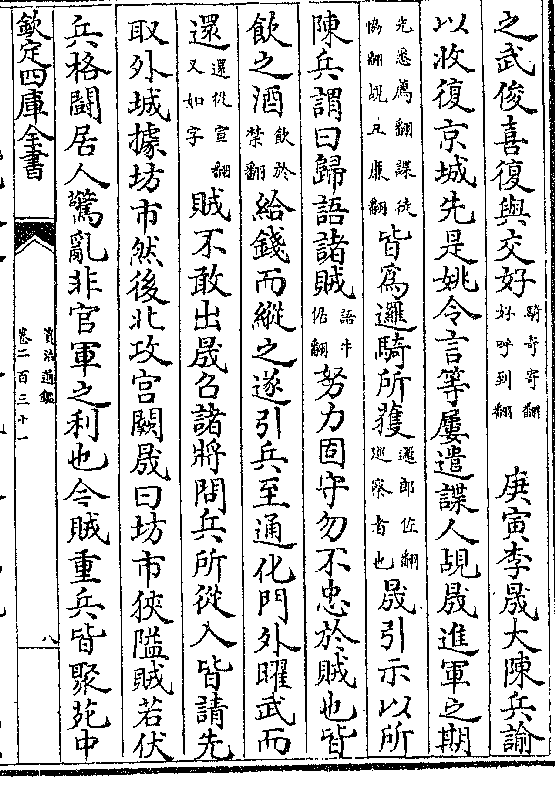 之武俊喜復與交好騎奇寄翻好呼到翻 庚寅李晟大陳兵諭
以收復京城先是姚令言等屢遣諜人覘晟進軍之期
先悉薦翻諜徒協翻覘丑廉翻皆爲邏騎所獲邏郎佐翻廵察者也晟引示以所
陳兵謂曰歸語諸賊語牛倨翻努力固守勿不忠於賊也皆
飲之酒飲於禁翻給錢而縱之遂引兵至通化門外曜武而
還還從宣翻又如字賊不敢出晟召諸將問兵所從入皆請先
取外城據坊市然後北攻宫闕晟曰坊市狹隘賊若伏
兵格鬭居人驚亂非官軍之利也今賊重兵皆聚苑中
欽定四庫全書
資治通鑑
卷二百三十一
八